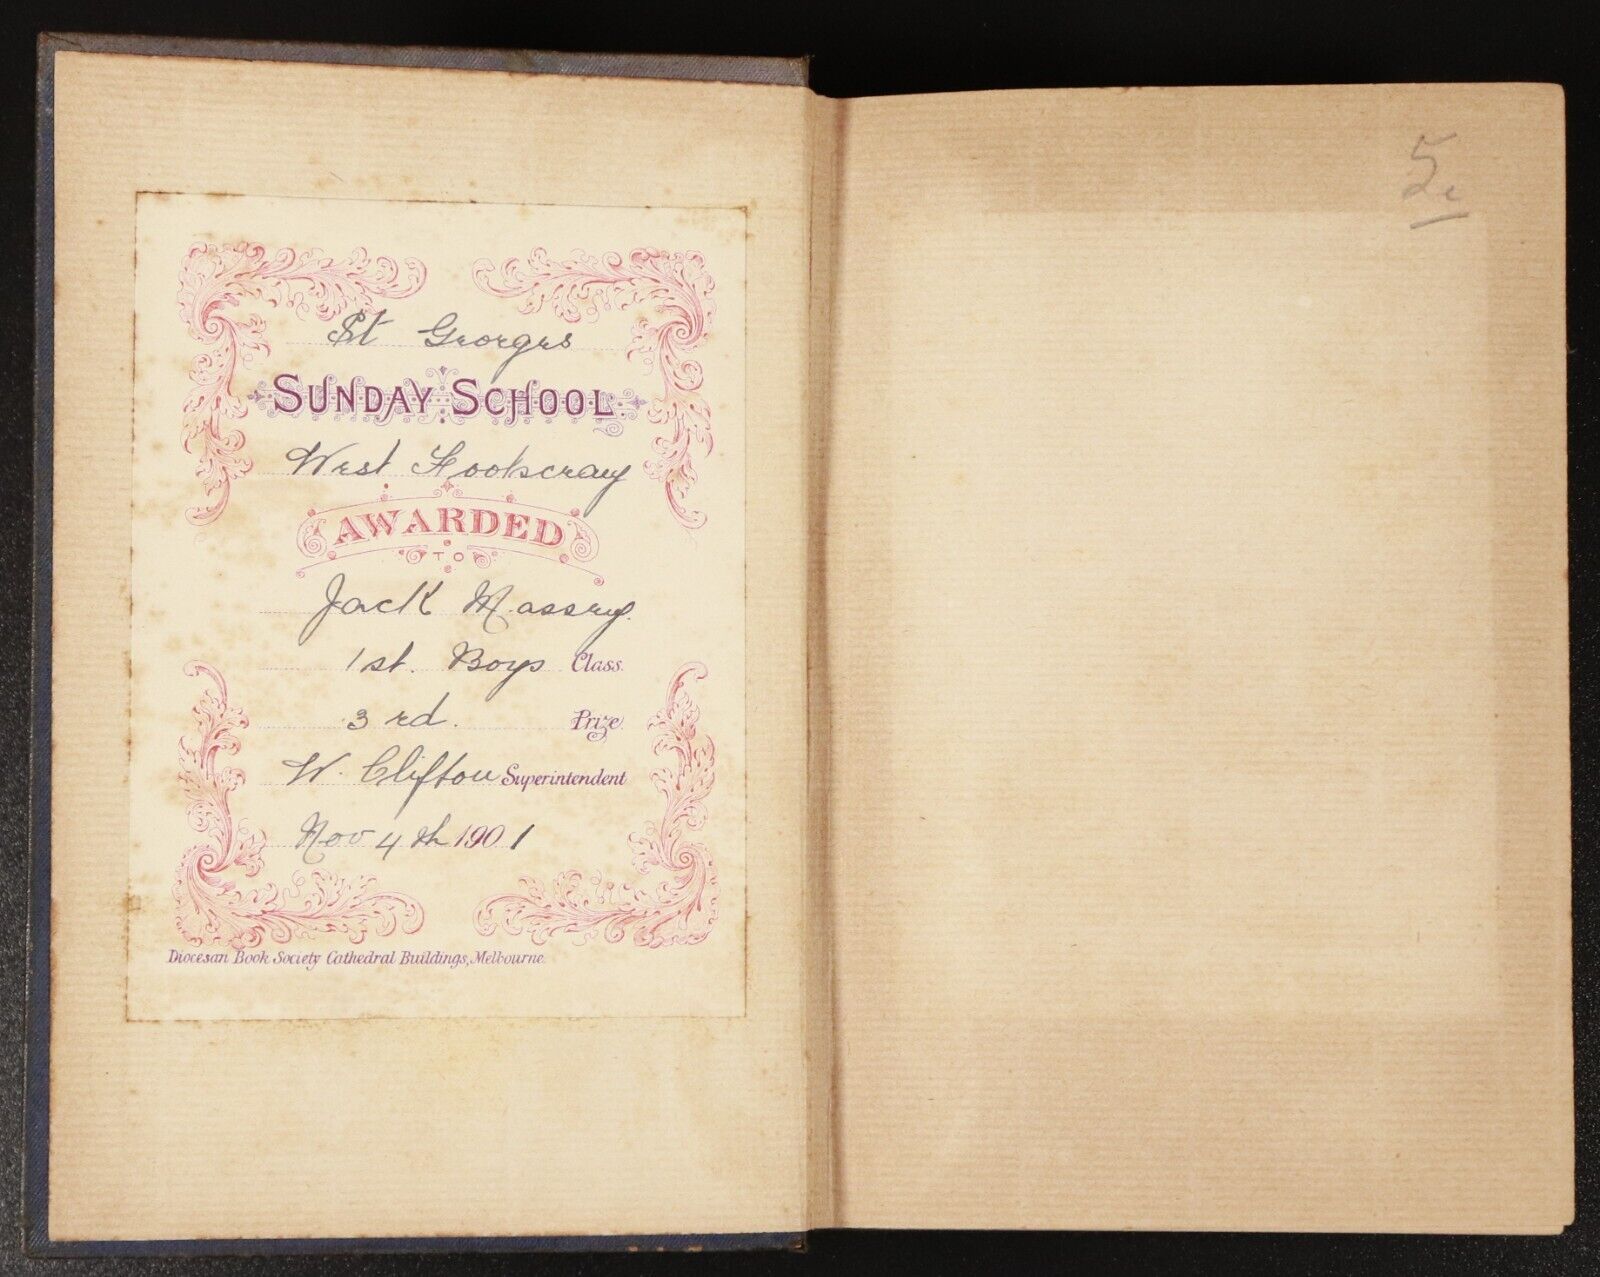 St Georges
SUNDAY SCHOOL
West Footscray
AWARDED
TO
Jack Massey.
1st. Boys Class.
3rd. Prize.
W. Clifton Superintendent
Nov 4th 1901
Diocesan Book Society Cathedral Buildings, Melbourne.